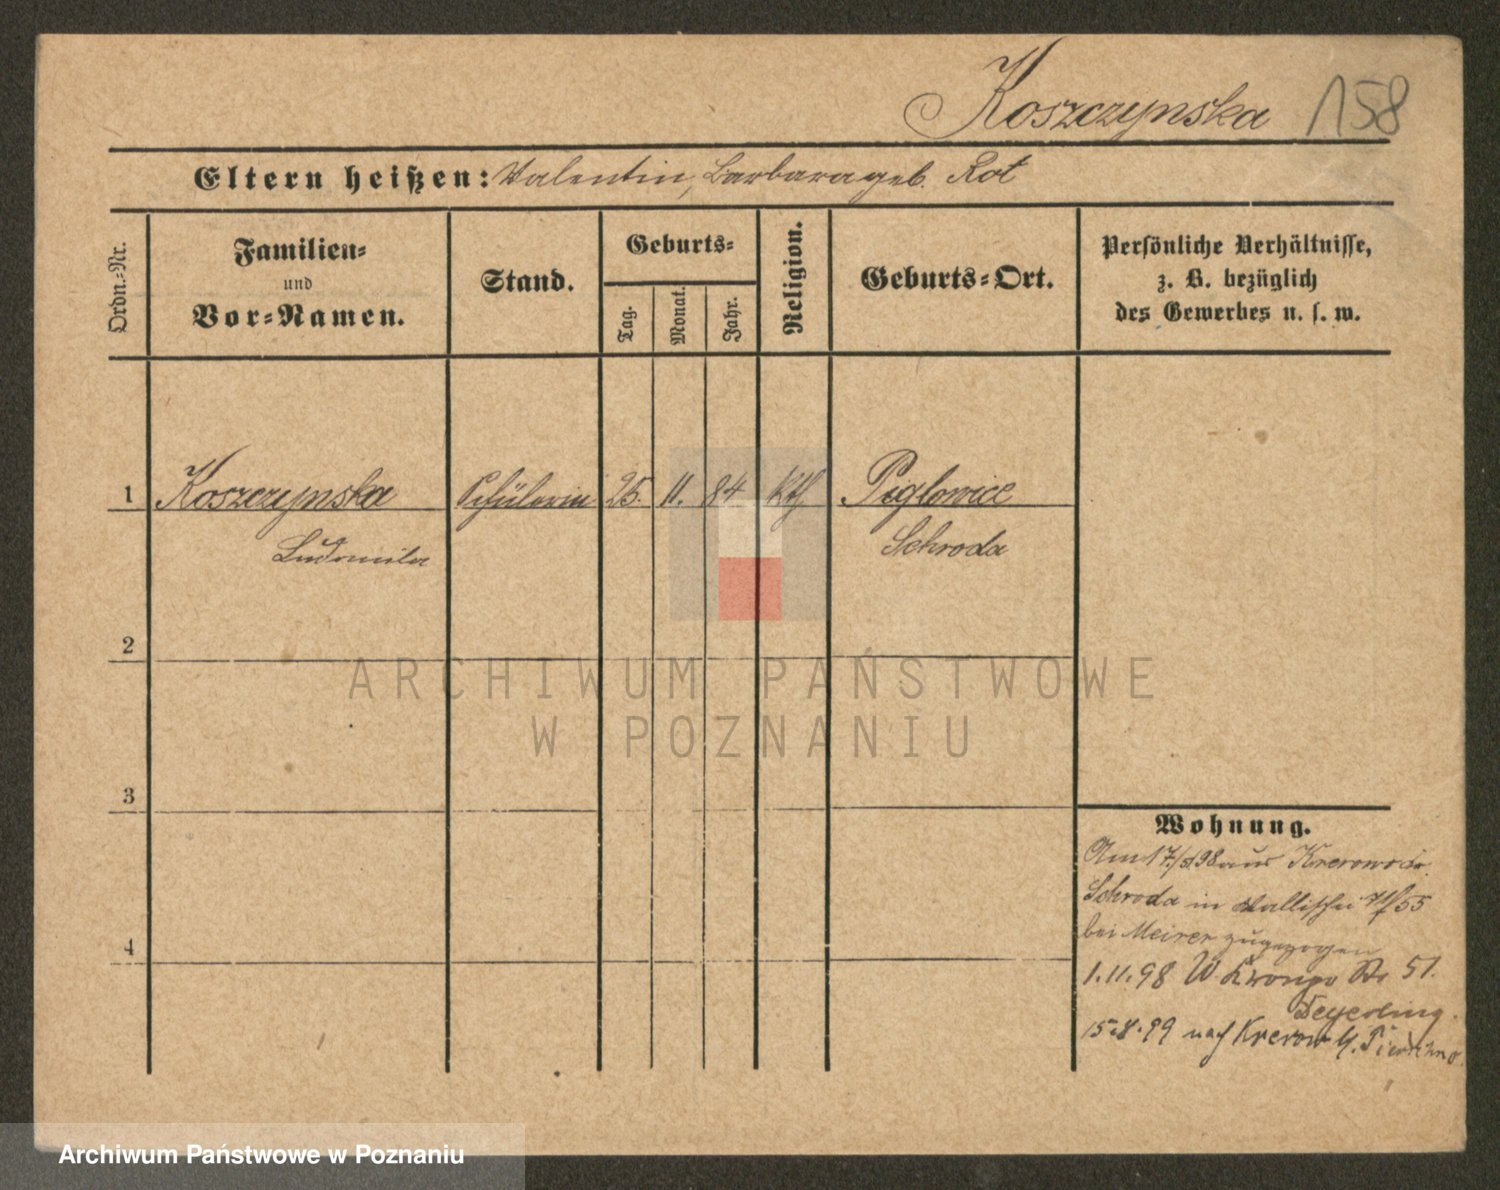 Koszczynska 158
Eltern heißen: Valentin, Barbara geb. Rot
Ordn.-Nr.
Familien-
und
Vor-Namen.
Stand.
Geburts-
Tag.
Monat.
Jahr.
Religion.
Geburts-Ort.
Persönliche Verhältnisse,
z. B. bezüglich
des Gewerbes u. s. w.
1 Koszczynska Schülerin 25. 11. 84 kth Piglowice
Ludomila Schroda
2
ARCHIWUM PAŃSTWOWE
W POZNANIU
3
4
Wohnung.
Am 17/ 98 aus
Schroda in Wallischei 55
bei Meirer zugezogen
1.11.98 W 51.
15.8.99 nach Krerow
Archiwum Państwowe w Poznaniu